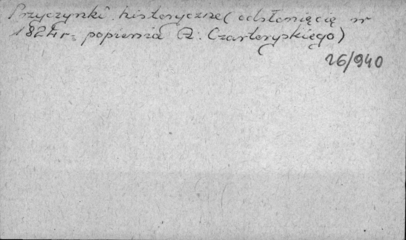 Przyczynki historyczne (odsłonięcie w
1824 r. popiersia A. Czartoryskiego)
26/940